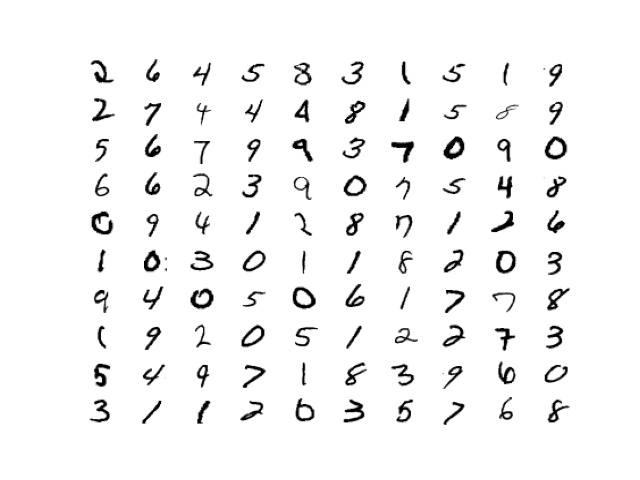 2 6 4 5 8 3 1 5 1 9
2 7 4 4 4 8 1 5 8 9
5 6 7 9 9 3 7 0 9 0
6 6 2 3 9 0 7 5 4 8
0 9 4 1 2 8 7 1 2 6
1 0 3 0 1 1 8 2 0 3
9 4 0 5 0 6 1 7 7 8
1 9 2 0 5 1 2 2 7 3
5 4 9 7 1 8 3 9 6 0
3 1 1 2 0 3 5 7 6 8